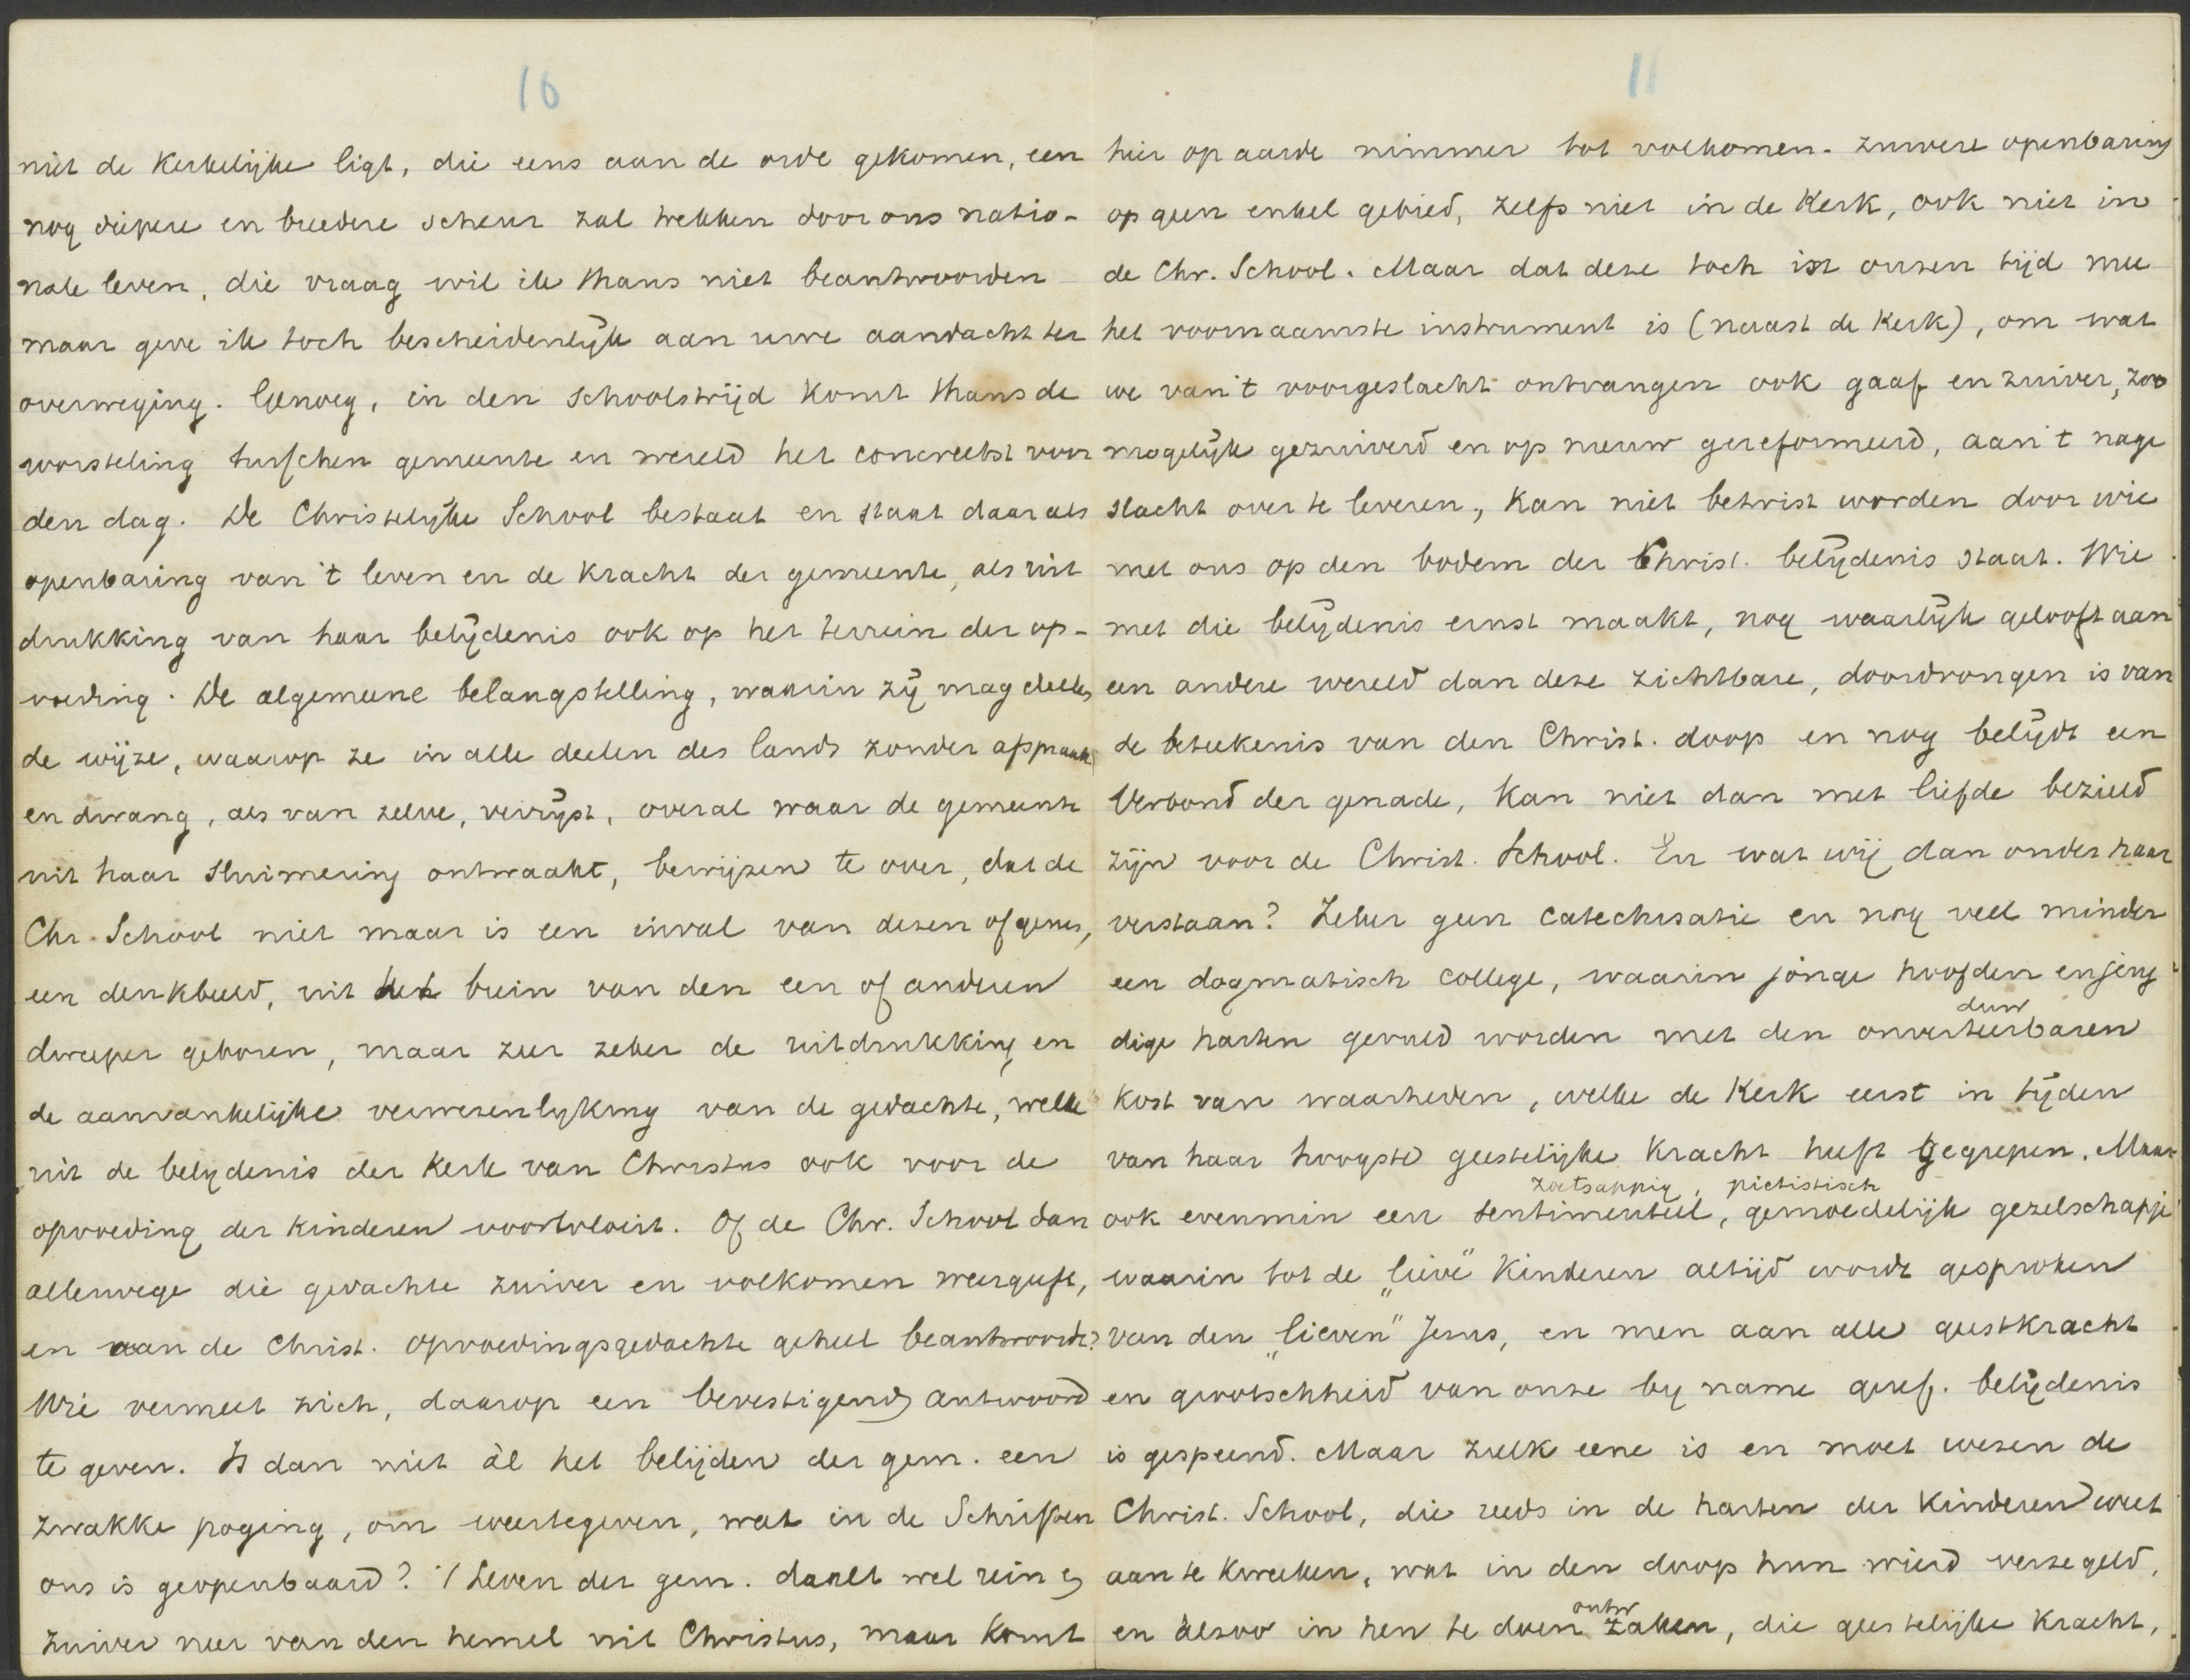 10
niet de Kerkelijke ligt, die eens aan de orde gekomen, een
nog diepere en breedere scheur zal trekken door ons natio-
nale leven, die vraag wil ik thans niet beantwoorden
maar geve ik toch bescheidenlijk aan uwe aandacht ter
overweging. Genoeg, in den schoolstrijd komt thans de
worsteling tusschen gemeente en wereld het concreetst voor
den dag. De Christelijke School bestaat en staat daar als
openbaring van 't leven en de Kracht der gemeente, als uit
drukking van haar belijdenis ook op het terrein der op-
voeding. De algemeene belangstelling, waarin zij mag deelen,
de wijze, waarop ze in alle deelen des lands zonder afspraak
en dwang, als van zelve, verrijst, overal waar de gemeente
uit haar sluimering ontwaakt, bewijzen te over, dat de
Chr. School niet maar is een inval van dezen of genen,
een denkbeeld, uit het brein van den een of anderen
dweeper geboren, maar zeer zeker de uitdrukking en
de aanvankelijke verwezenlyking van de gedachte, welke
uit de belydenis der Kerk van Christus ook voor de
opvoeding der Kinderen voortvloeit. Of de Chr. School dan
allerwege die gedachte zuiver en volkomen weergeeft,
en aan de Christ. opvoedingsgedachte geheel beantwoordt?
Wie vermeet zich, daarop een bevestigend antwoord
te geven. Is dan niet àl het belijden der gem. een
zwakke poging, om weertegeven, wat in de Schriften
ons is geopenbaard? 't Leven der gem. daalt wel rein en
zuiver neer van den hemel uit Christus, maar komt
11
hier op aarde nimmer tot volkomen-zuivere openbaring
op geen enkel gebied, zelfs niet in de Kerk, ook niet in
de Chr. School. Maar dat deze toch in onzen tijd mee
het voornaamste instrument is (naast de Kerk), om wat
we van 't voorgeslacht ontvangen ook gaaf en zuiver, zoo
mogelijk gezuiverd en op nieuw gereformeerd, aan 't nage
slacht over te leveren, kan niet betwist worden door wie
met ons op den bodem der Christ. belijdenis staat. Wie
met die belijdenis ernst maakt, nog waarlijk gelooft aan
een andere wereld dan deze zichtbare, doordrongen is van
de beteekenis van den Christ. doop en nog belijdt een
Verbond der genade, kan niet dan met liefde bezield
zijn voor de Christ. School. En wat wij dan onder haar
verstaan? Zeker geen catechisatie en nog veel minder
een dogmatisch college, waarin jonge hoofden en jeug
duw
dige harten gevuld worden met den onverteerbaren
kost van waarheden, welke de Kerk eerst in tijden
van haar hoogste geestelijke Kracht heeft gegrepen. Maar
zoetsappig, pietistisch
ook evenmin een sentimenteel, gemoedelijk gezelschapje
waarin tot de „lieve" Kinderen altijd wordt gesproken
van den „lieven" Jezus, en men aan alle geestkracht
en grootschheid van onze by name geref. belijdenis
is gespeend. Maar zulk eene is en moet wezen de
Christ. School, die reeds in de harten der Kinderen weet
aan te kweeken, wat in den doop hun wierd verzegeld,
ontw
en alzoo in hen te doen zaken, die geestelijke Kracht,